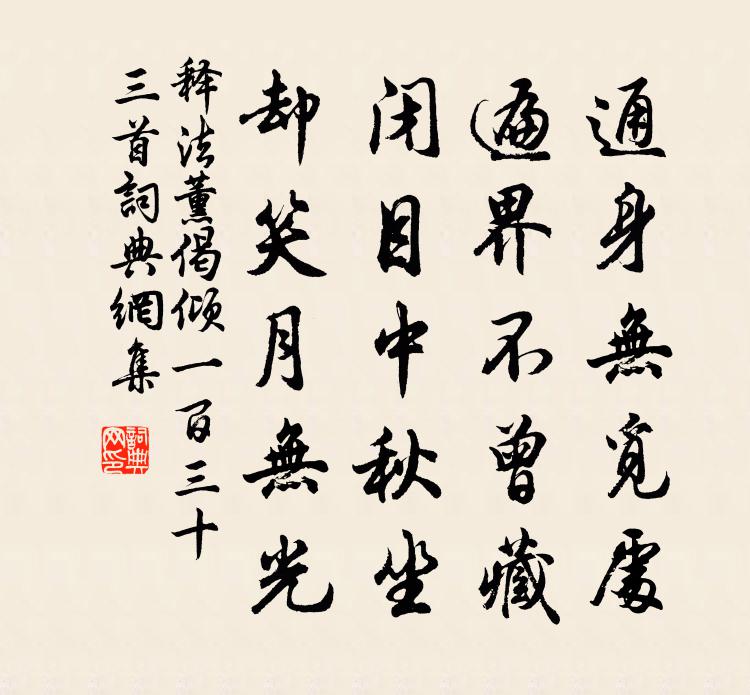 通身無覓處
遍界不曾藏
閉目中秋坐
却笑月無光
释法薰偈傾一百三十
三首詞典網集
詞典
网印